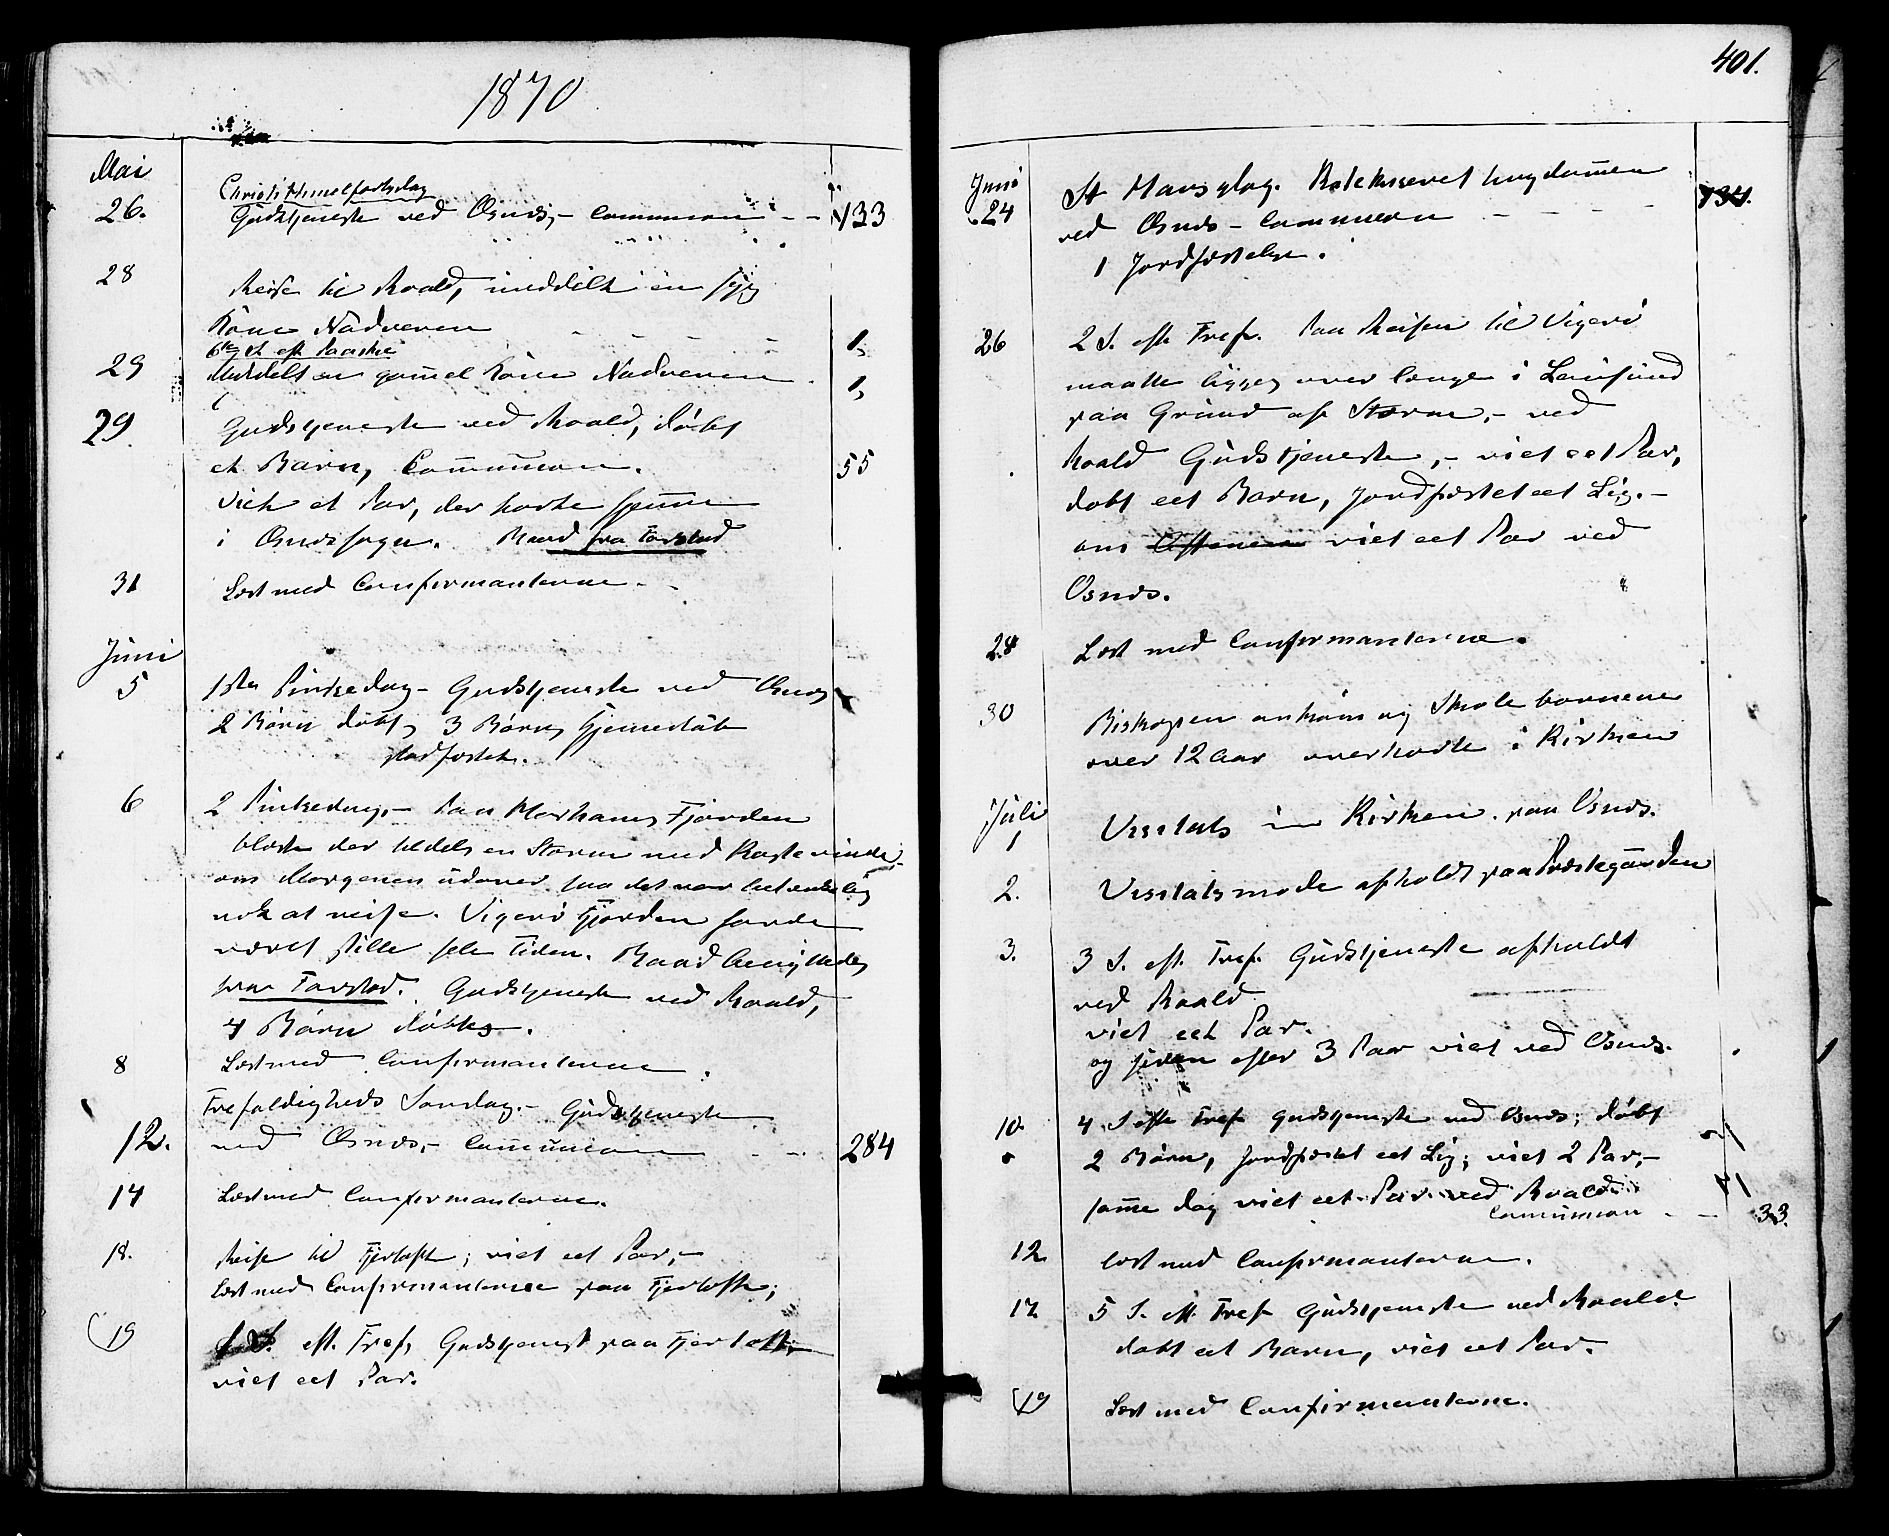 1870
Mai
Christi Himelfartsdag
26. Gudstjeneste ved Osnæs, – Communion – – 133
28 Reise til Roald, meddelt en syg
Kone Nadveren – – – – 1,
6te S. eft. Paaske
29 Meddelt en gammel Kone Nadveren . 1,
29. Gudstjeneste ved Roald, døbt
et Barn, Communion. 55
Viet et Par, der hørte hjemme
i Osnæs sogn. Baad fra Farstad
31 Læst med Confirmanterne. –
Juni
5 1ste Pintsedag – Gudstjeneste ved Osnæs
2 Børn døbt, 3 Børns Hjemmedåb
stadfæstet.
6 2 Pintsedag. – Paa Harhams Fjorden
blæste der tildels en Storm med Kastevinde
om Morgenen udover, saa det var betænkelig
nok at reise. Vigerö Fjorden havde
været stille hele Tiden. Baad benyttedes
fra Farstad. Gudstjeneste ved Roald,
4 Børn døbtes.
8 Læst med Confirmanterne.
Trefoldigheds Søndag. – Gudstjeneste
12. ved Osnæs, – Communion – –. 284
14 Læst med Confirmanterne.
18. Reise til Fjørtoft; viet eet Par, –
Læst med Confirmanterne paa Fjørtoft;
19 1 S. eft. Tref. Gudstjenest paa Fjørtoft,
viet eet Par.
401.
Juni
24 St Hans dag. Katekiseret Ungdommen 134.
ved Osnæs – Communion – – – –
1 Jordfæstelse.
26 2 S. eft Tref. Paa Reisen til Vigerö
maatte ligges over længe i Lausund
paa Grund af Storm, – ved
Roald Gudstjeneste, – viet eet Par,
døbt eet Barn, Jordfæstet eet Lig. –
om Aftenen viet eet Par ved
Osnæs.
28 Læst med Confirmanterne.
30 Biskopen ankom og Skolebørnene
over 12 Aar overhørte i Kirken
Juli
1 Visitats i Kirken paa Osnæs.
2. Visitatsmøde afholdt paa Præstegaarden
3. 3 S. eft. Tref. Gudstjeneste afholdt
ved Roald
viet eet Par.
og siden efter 3 Par viet ved Osnæs.
10. 4 S. efter Tref Gudstjeneste ved Osnæs; døbt
2 Børn, Jordfæstet eet Lig; viet 2 Par, –
samme dag viet eet Par ved Roald.
Communion – – 33.
12 læst med Confirmanterne.
17 5 S. eft. Tref Gudstjeneste ved Roald.
døbt eet Barn, viet eet Par.
19 Læst med Confirmanterne.